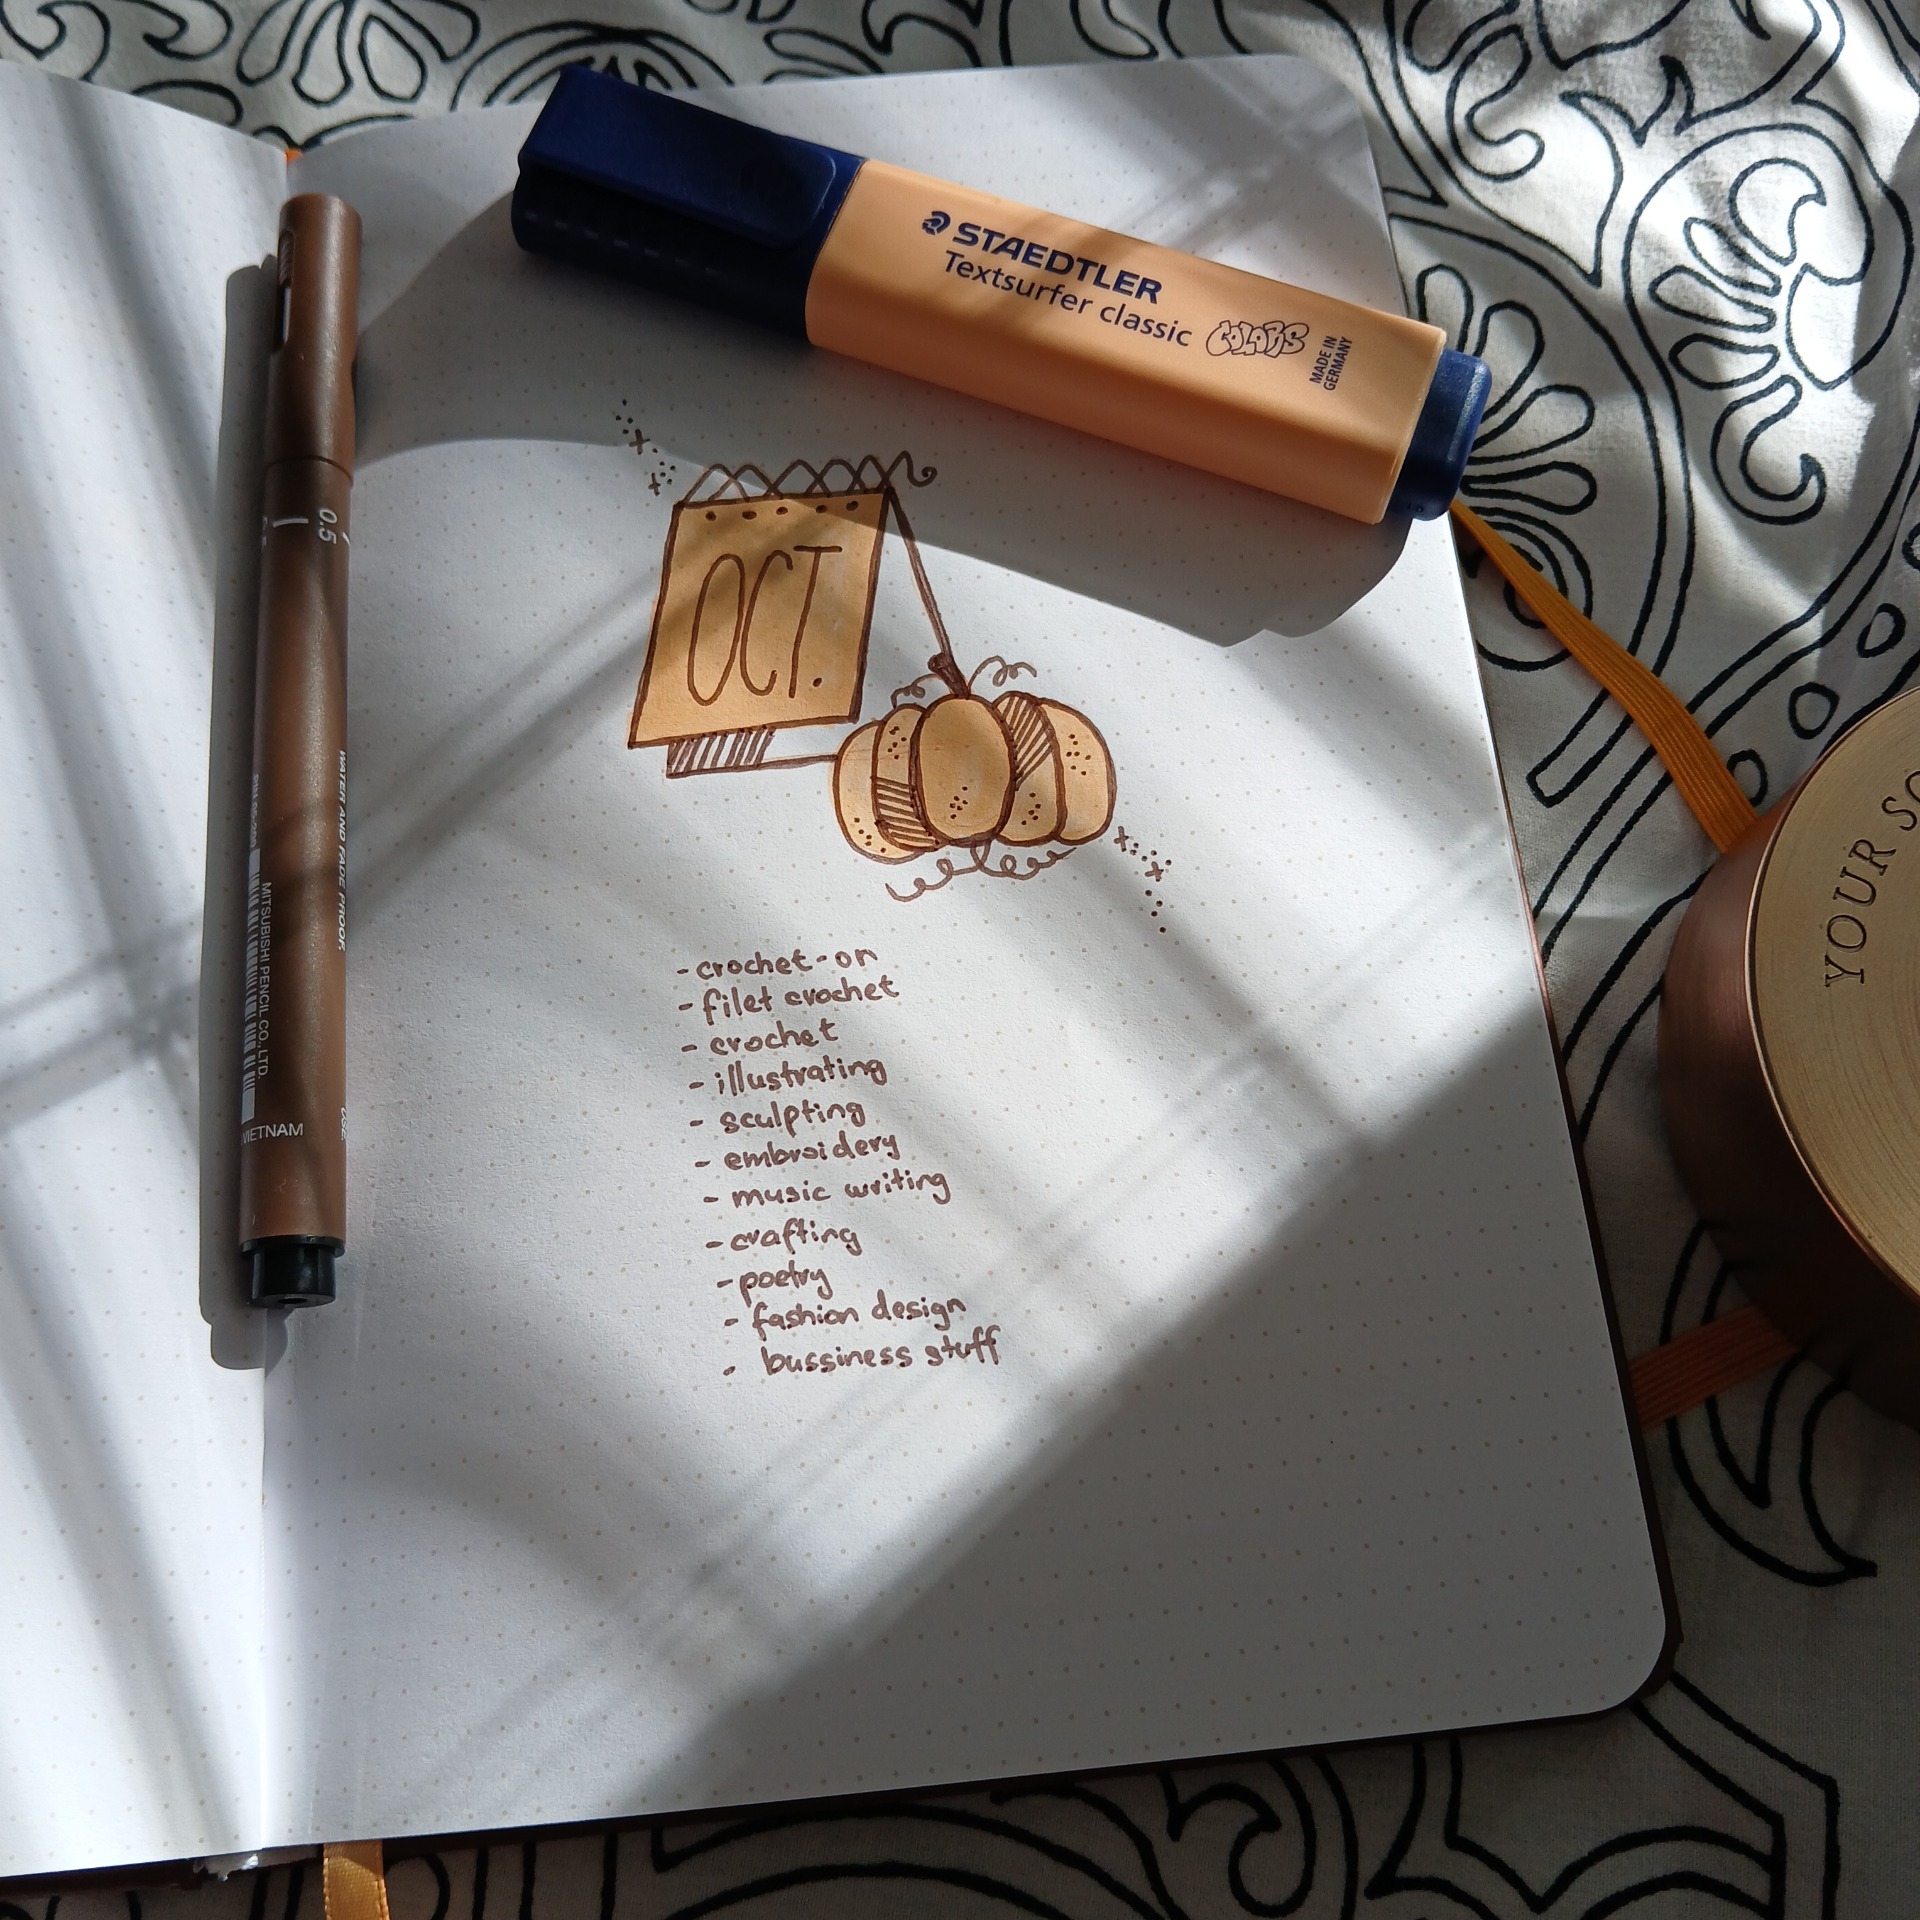 STAEDTLER
Textsurfer classic
COLORS
MADE IN
GERMANY
0.5
WATER AND FADE PROOF
MITSUBISHI PENCIL CO., LTD.
VIETNAM
OCT.
- crochet-on
- filet crochet
- crochet
- illustrating
- sculpting
- embroidery
- music writing
- crafting
- poetry
- fashion design
- bussiness stuff
YOUR